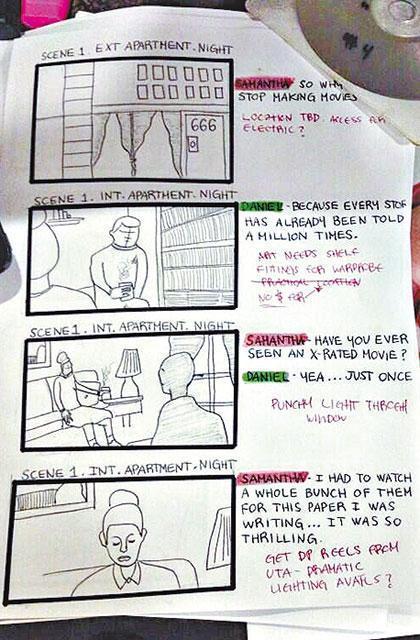 SCENE 1 EXT APARTMENT.NIGHT
666
SAMANTHA SO WHY
STOP MAKING MOVIES
LOCATION TBD. ACCESS FOR
ELECTRIC?
SCENE 1. INT. APARTMENT.NIGHT
DANIEL - BECAUSE EVERY
HAS ALREADY BEEN TOLD
A MILLION TIMES.
ART NEEDS SHELF
FITTINGS FOR WARDROBE
PRACTICAL LOCATION
NO $ FOR
SCENE 1. INT. APARTMENT.NIGHT
SAMANTHA - HAVE YOU EVER
SEEN AN X-RATED MOVIE?
DANIEL - YEA... JUST ONCE
PUNCHY LIGHT THROUGH
WINDOW
SCENE 1. INT. APARTMENT.NIGHT
SAMANTHA - I HAD TO WATCH
A WHOLE BUNCH OF THEM
FOR THIS PAPER I WAS
WRITING... IT WAS SO
THRILLING.
GET DP REELS FROM
UTA - DRAMATIC
LIGHTING AVAILS?